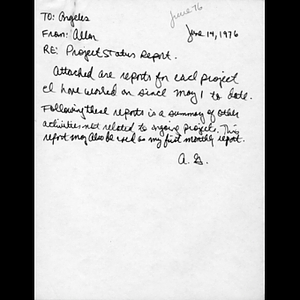 June 76
TO: Angeles
From: Allan June 14, 1976
RE: Project Status Report.
Attached are reports for each project
I have worked on since May 1 to date.
Following these reports is a summary of other
activities not related to ongoing projects. This
report may also be used as my first monthly report.
A. G.